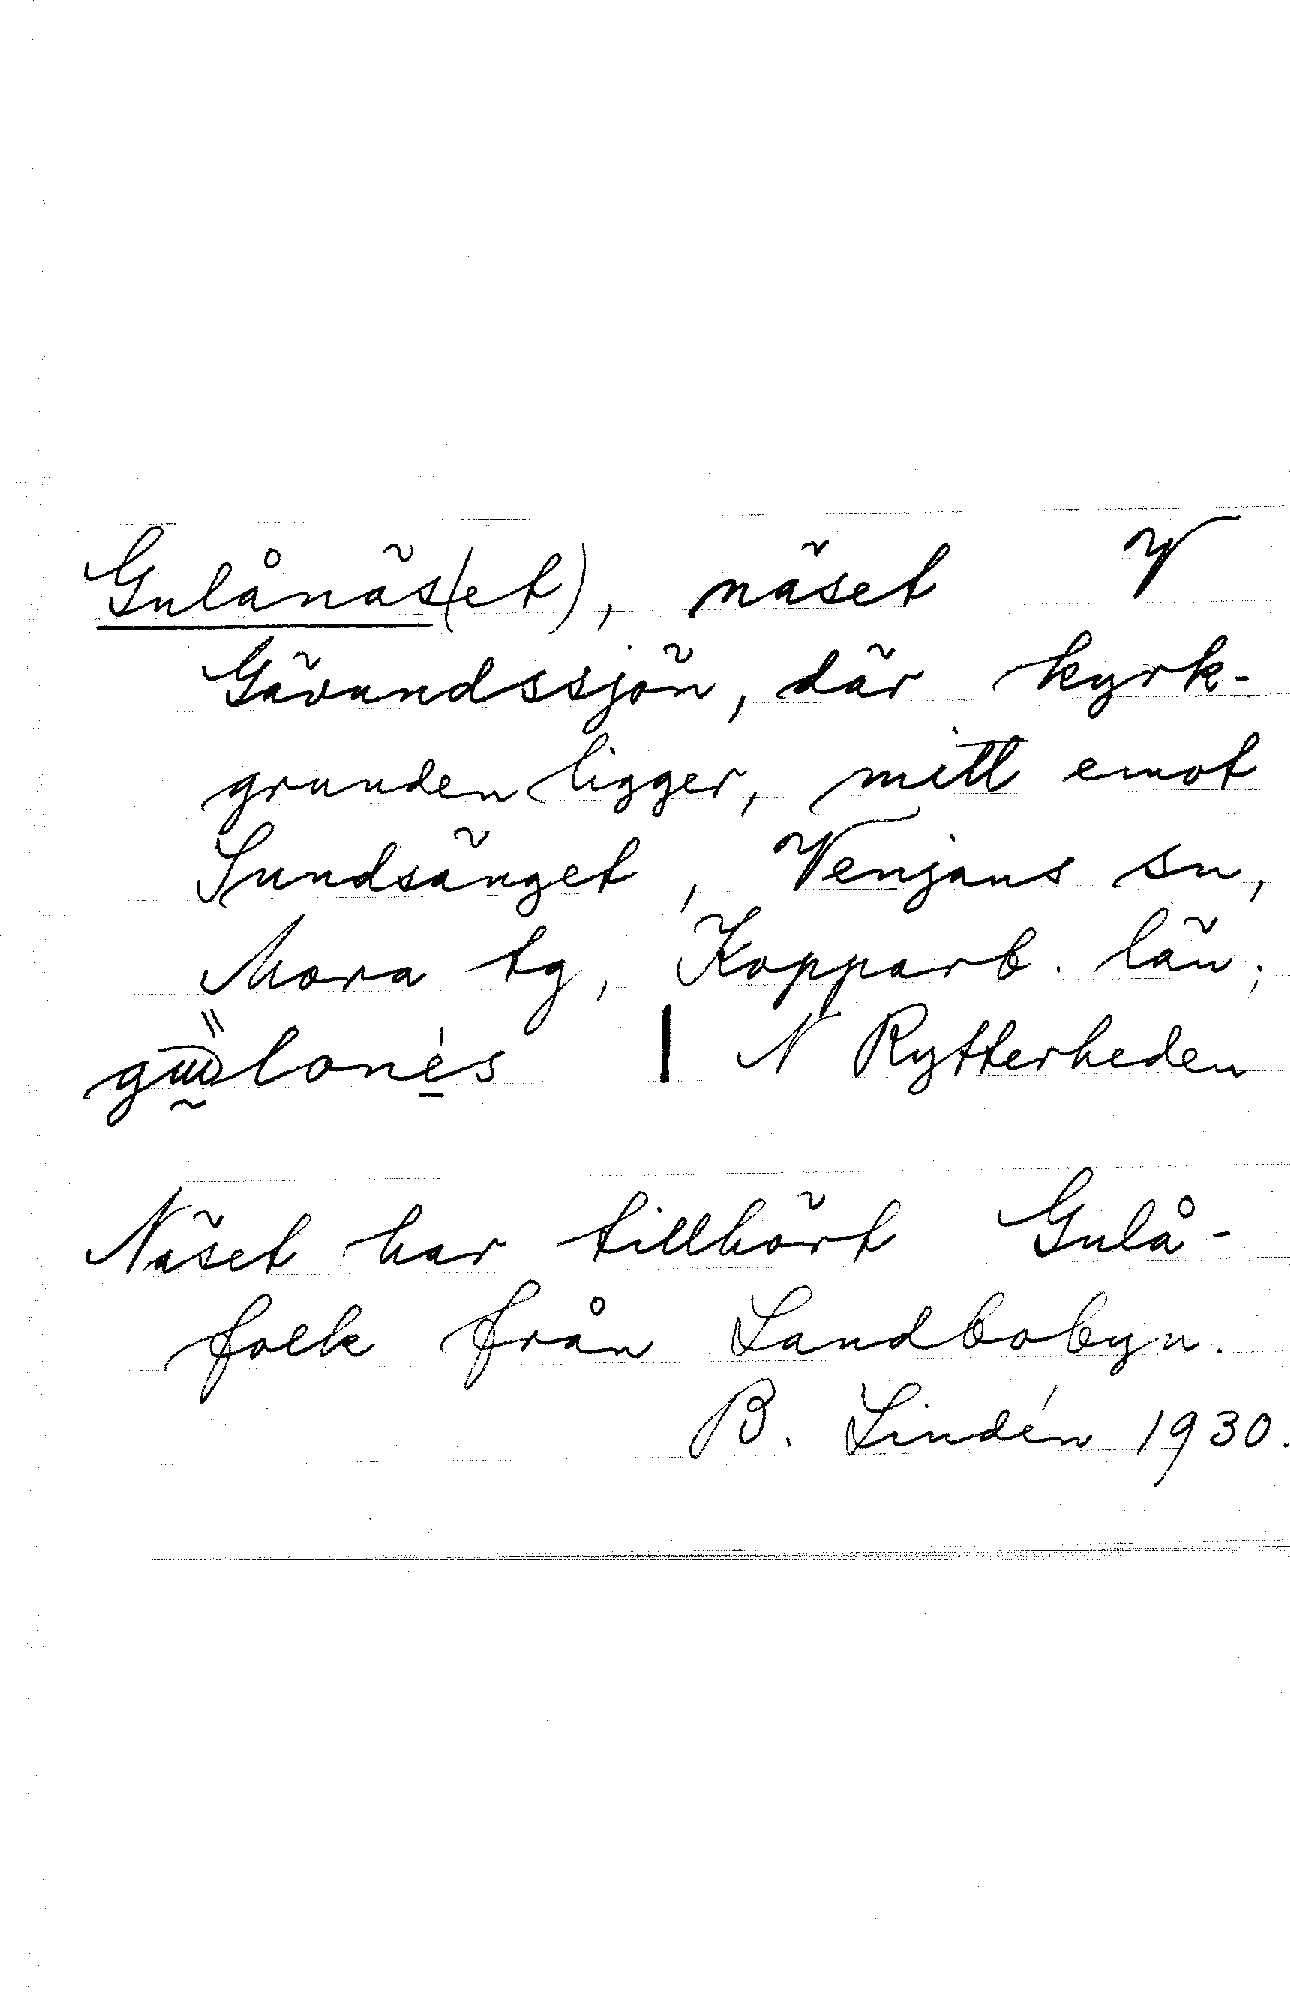 Gulånäs(et), näset V
Gävundssjön, där kyrk-
grunden ligger, mitt emot
Sundsänget, Venjans sn,
Mora tg, Kopparb. län;
| N Rytterheden
Näset har tillhört Gulå-
folk från Landbobyn.
B. Lindén 1930.